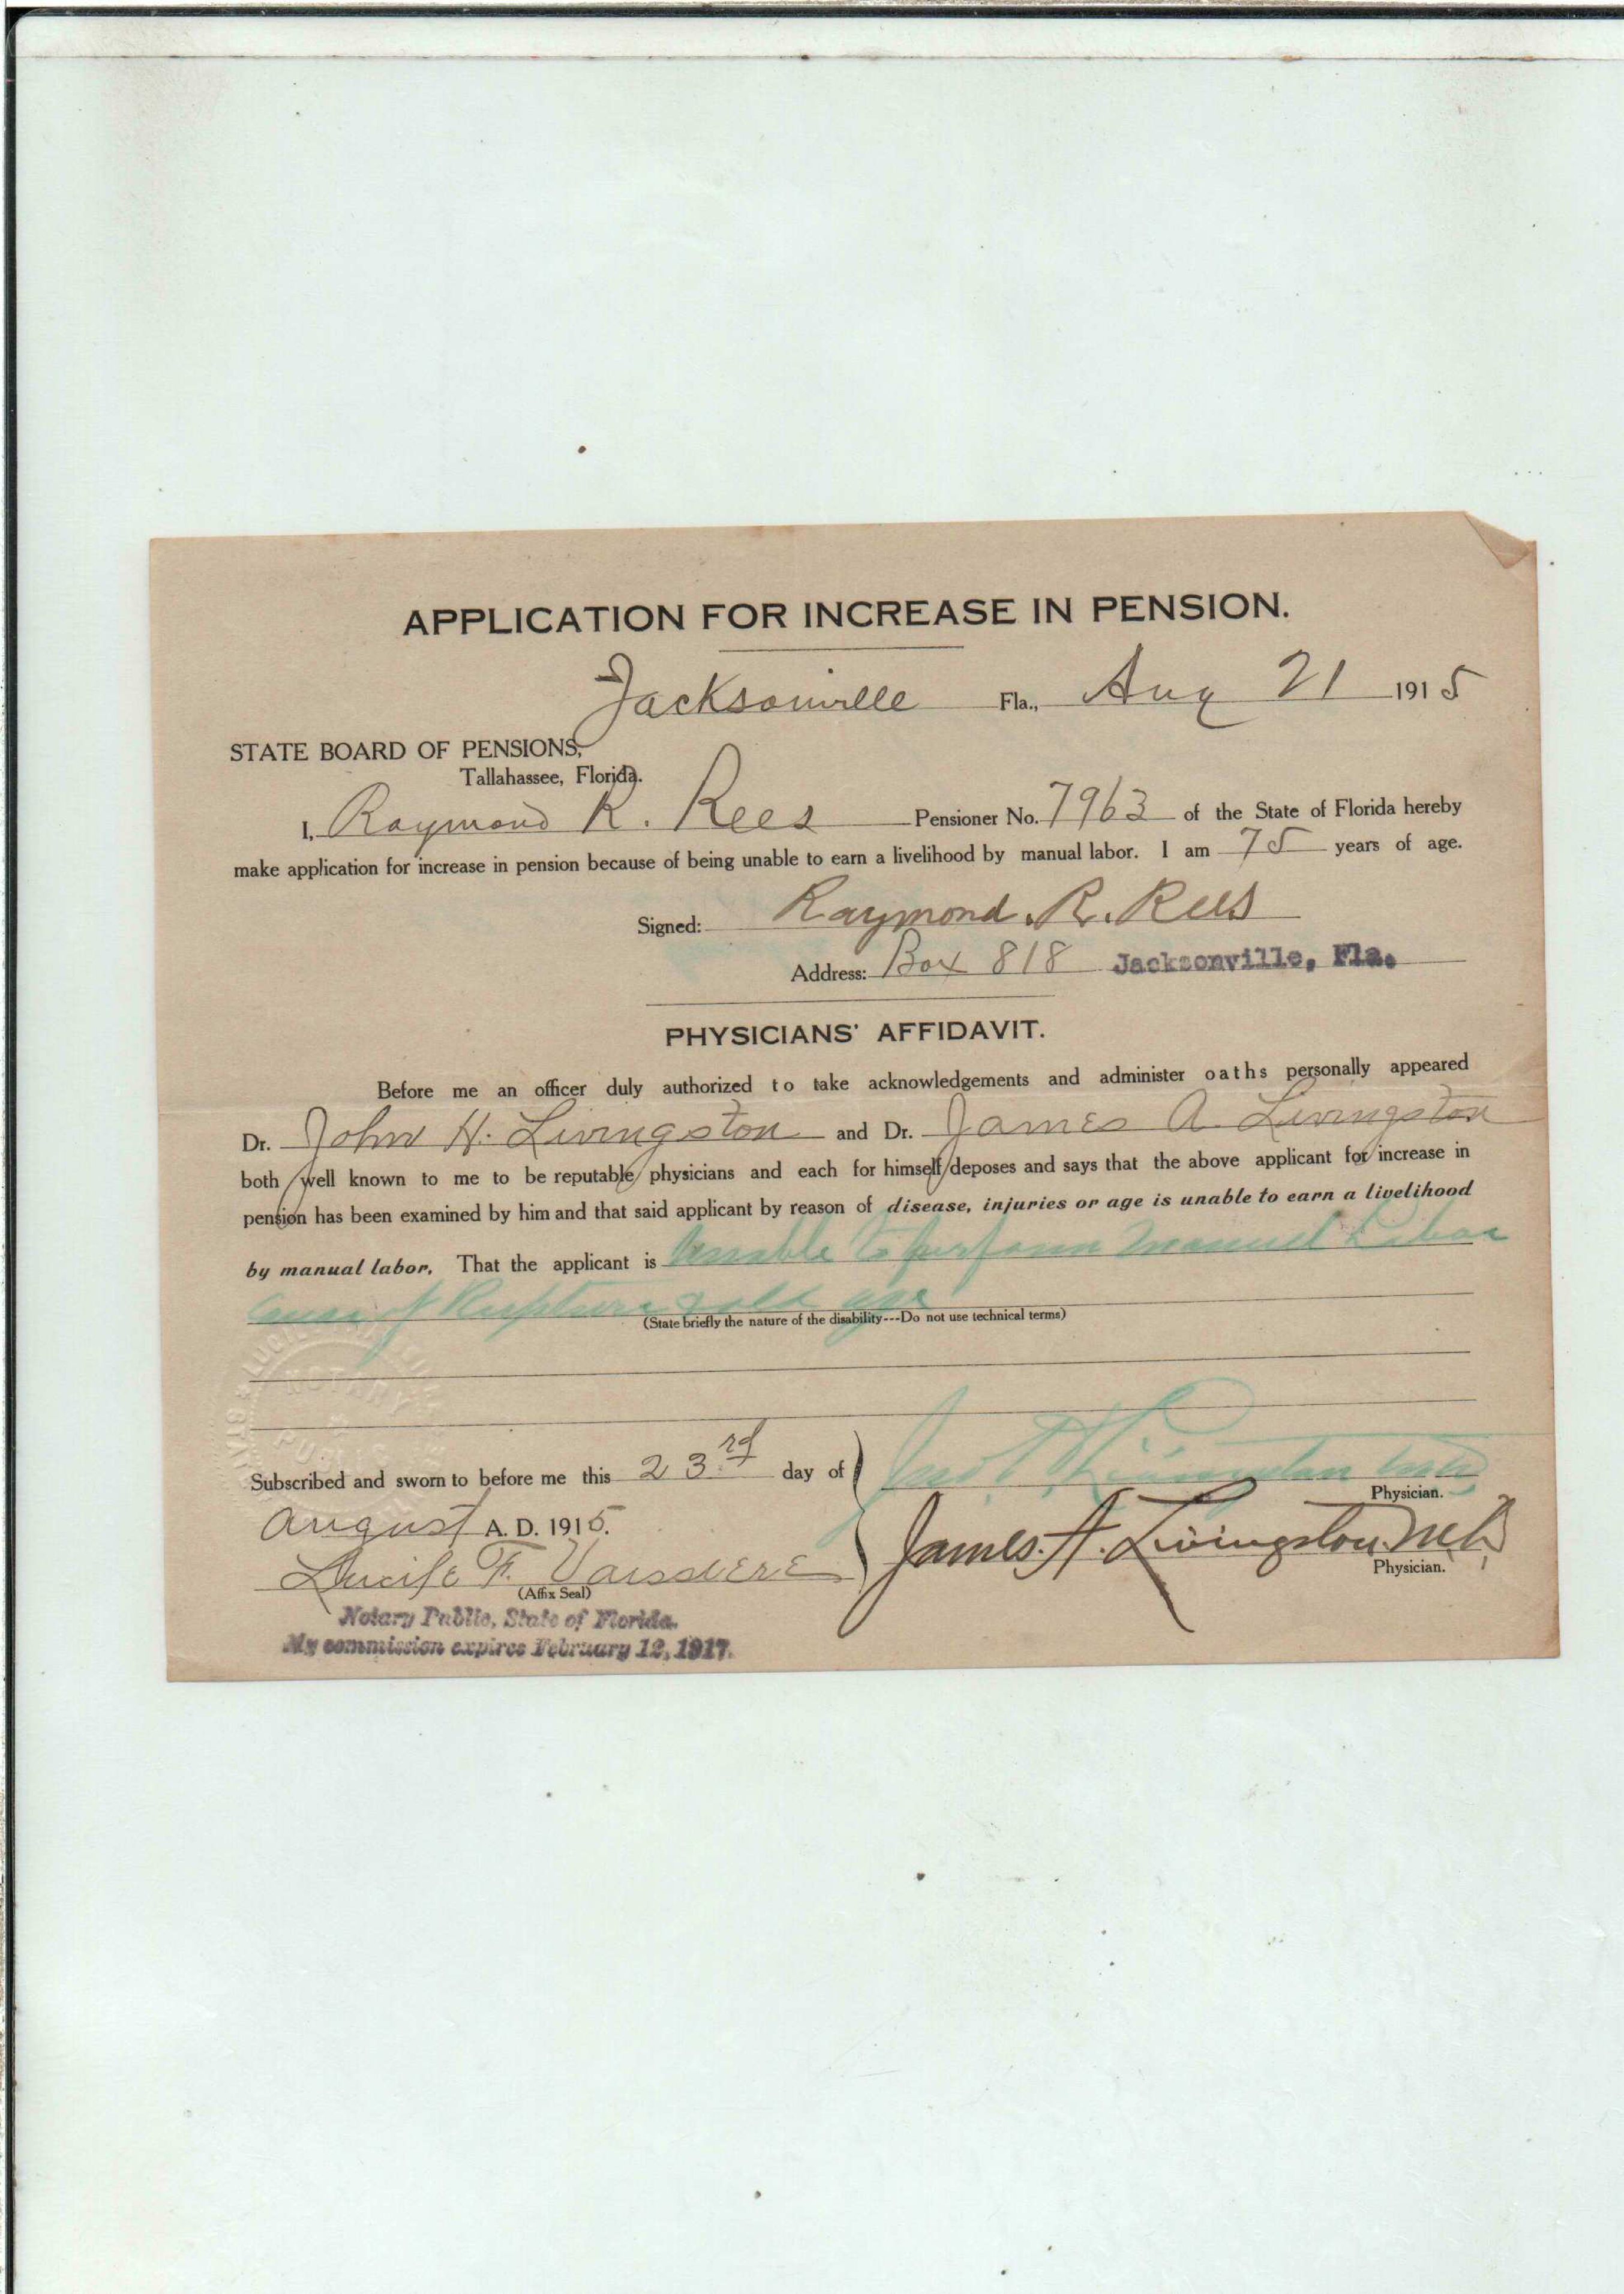 APPLICATION FOR INCREASE IN PENSION.
Jacksonville Fla., Aug 21 1915
STATE BOARD OF PENSIONS,
Tallahassee, Florida.
I, Raymond R. Rees Pensioner No. 7963 of the State of Florida hereby
make application for increase in pension because of being unable to earn a livelihood by manual labor. I am 75 years of age.
Signed: Raymond. R. Rees
Address: Box 818 Jacksonville, Fla.
PHYSICIANS' AFFIDAVIT.
Before me an officer duly authorized to take acknowledgements and administer oaths personally appeared
Dr. John H. Livingston and Dr. James A. Livingston
both well known to me to be reputable physicians and each for himself deposes and says that the above applicant for increase in
pension has been examined by him and that said applicant by reason of disease, injuries or age is unable to earn a livelihood
by manual labor. That the applicant is unable to perform manuel Labor
cause of Rupture & old age
(State briefly the nature of the disability---Do not use technical terms)
NOTARY
PUBLIC
Subscribed and sworn to before me this 23rd day of
Livingston
Physician.
August A. D. 1915.
James. A. Livingston M.D.
Physician.
Lucile F.
(Affix Seal)
Notary Public, State of Florida.
My commission expires February 12, 1917.